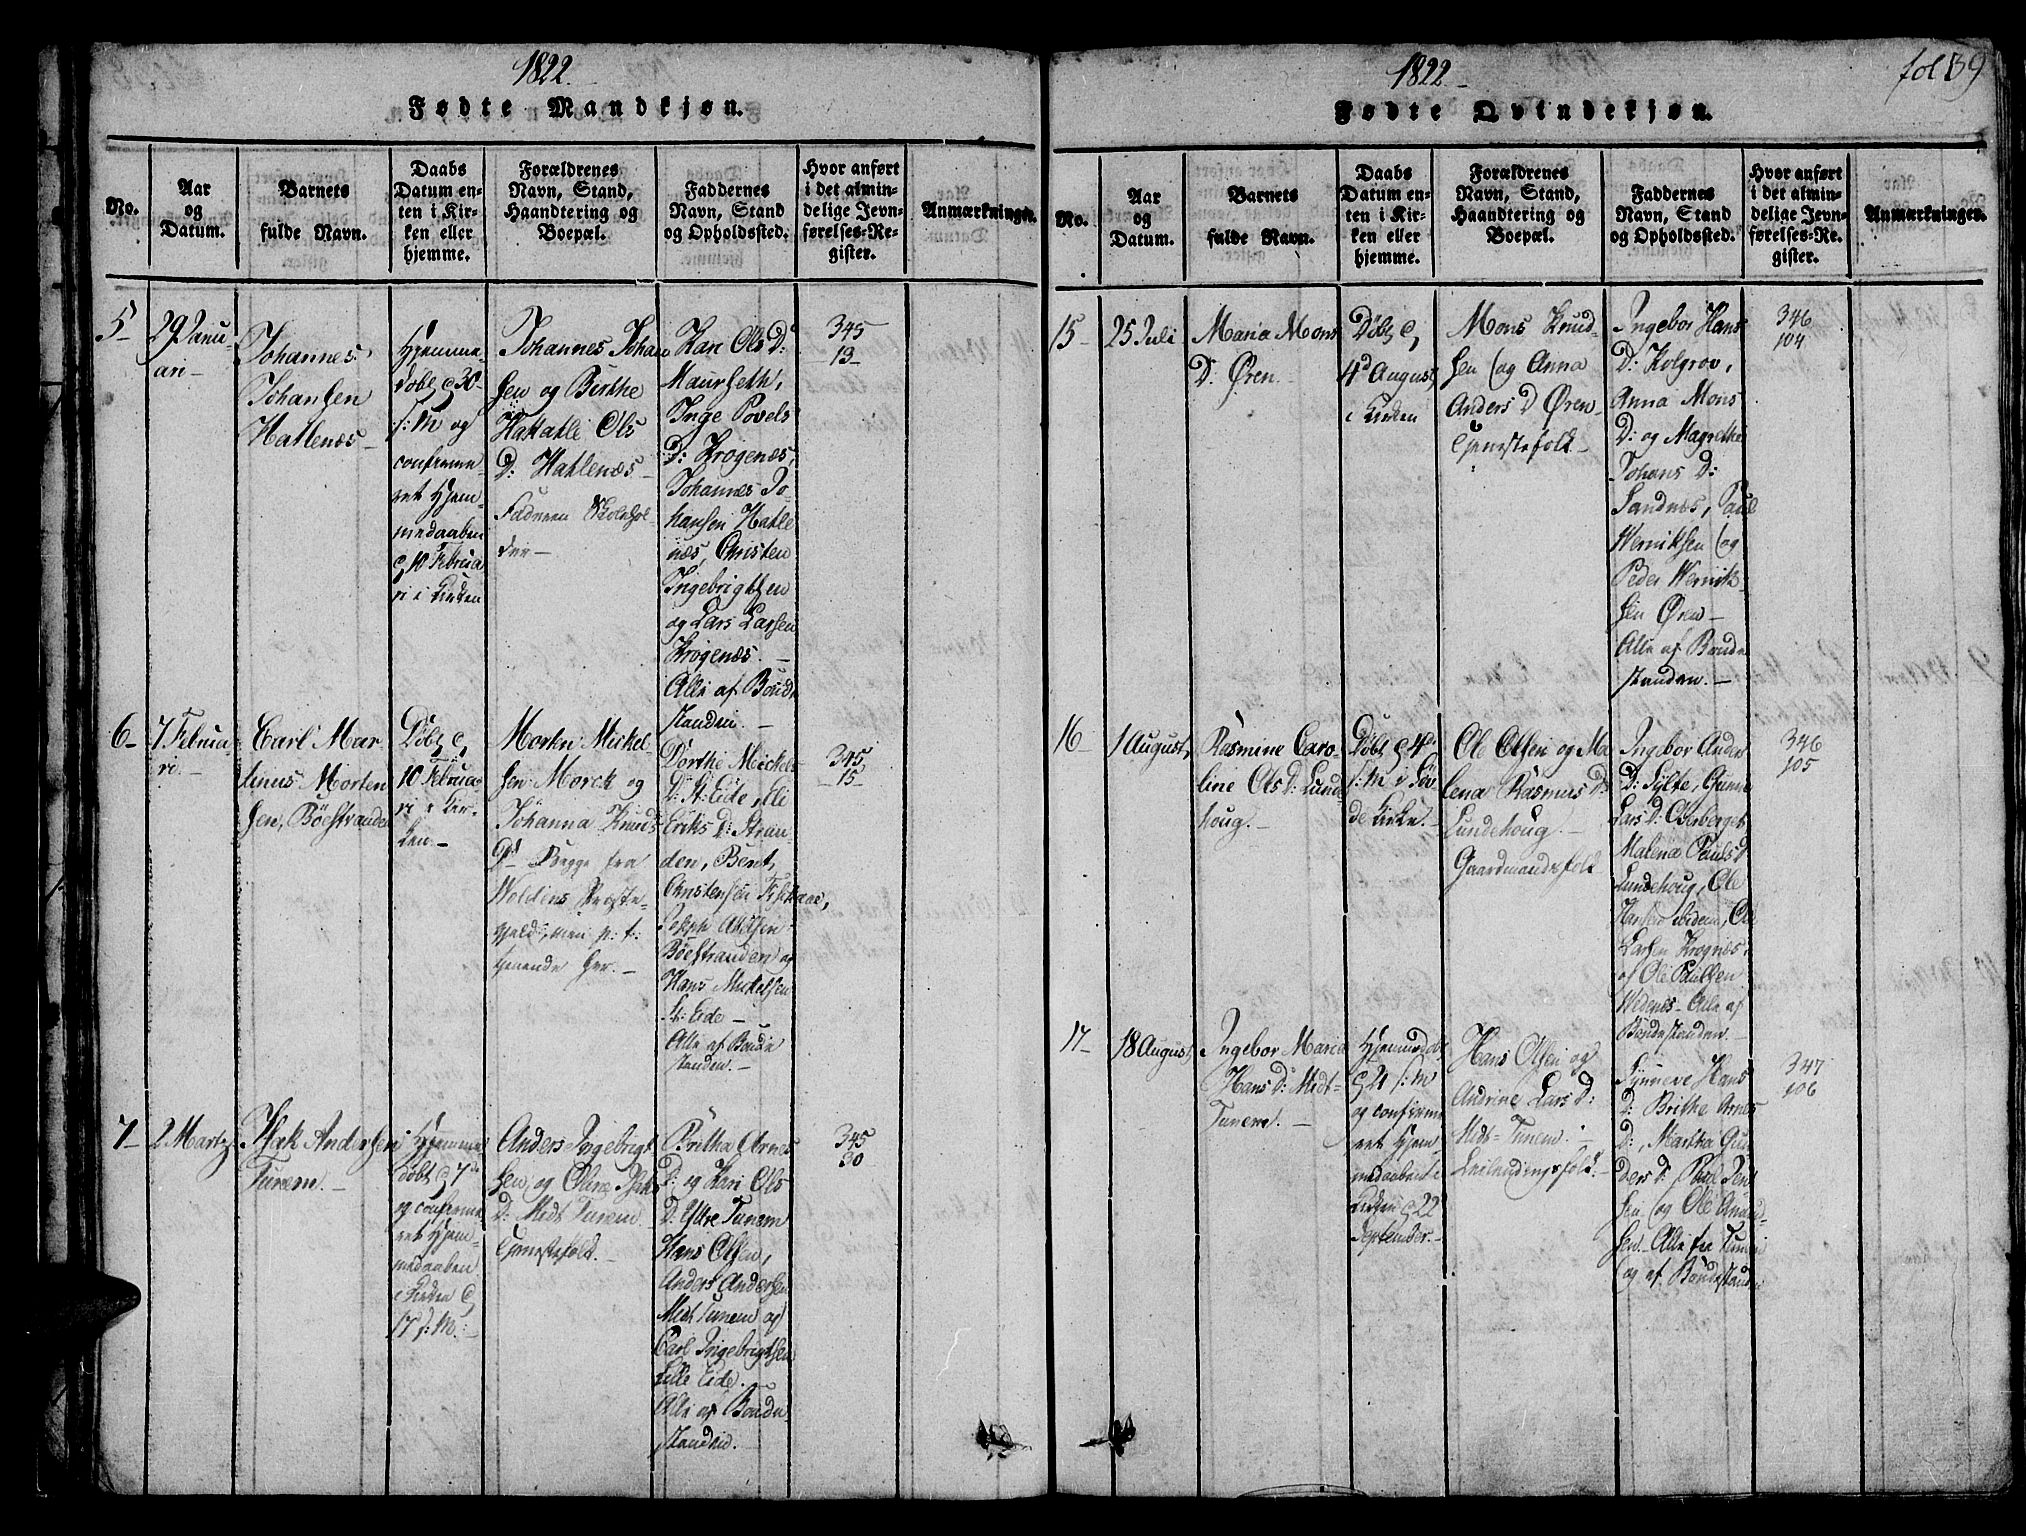 1822
Fødte Mandkjøn.
No.
Aar
og
Datum.
Barnets
fulde Navn.
Daabs
Datum en-
ten i Kir-
ken eller
hjemme.
Forældrenes
Navn, Stand,
Haandtering og
Boepæl.
Faddernes
Navn, Stand
og Opholdssted.
Hvor anført
i det almin-
delige Jevn-
førelses-Re-
gister.
Anmærkninger.
5
29 Janu
ari
Johannes
Johansen
Hatlenæs
Hjemme-
døbt d 30
s: M og
confirme
ret Hjem-
medaaben
d 10 Februa
ri i Kirken
Johannes Johan
sen og Birthe
Ols
D: Hatlenæs
Faderen Skolehol
der
Kari Ols D:
Maurseth,
Inge Povels
D: Krogenæs,
Johannes Jo-
hansen Hatle
næs, Christen
Ingebrigtsen
og Lars Larsen
Krogenæs.
Alle af Bonde
standen.
345
13
6
7 Februa
ri.
Carl Mar
tinus Morten
sen, Böestranden
Døbt d
10 Februa
ri i Kir-
ken
Morten Mickel
sen Morck og
Johanna Knuds
D Begge fra
Woldens Præste-
gjeld, men p: t:
tjenende her.
Dorthe Mickels
D: St: Eide, Eli
Eriks D: Stran
den, Bent
Christensen Fiskaae,
Joseph Andersen
Böestranden og
Hans Mickelsen
St: Eide
Alle af Bonde
standen.
345
15
7
2 Martz
Isak Andersen
Tunem.
Hjemme
døbt d 7de
og confirme
ret Hjem-
medaaben
i Kirken d
17 s: M:
Anders Ingebrigt
sen, og Oline Isaks
D: Midt Tunem
Tjenestefolk.
Britha Arnes
D: og Kari Ols
D: Ytre Tunem
Hans Olsen,
Anders Andersen
Midt Tunem og
Carl Ingebrigtsen
Lille Eide.
Alle af Bonde
standen.
345
30
1822
fol 139
Fødte Qvindekjøn.
No.
Aar
og
Datum.
Barnets
fulde Navn.
Daabs
Datum en-
ten i Kir-
ken eller
hjemme.
Forældrenes
Navn, Stand,
Haandtering og
Boepæl.
Faddernes
Navn, Stand
og Opholdssted.
Hvor anført
i det almin-
delige Jevn-
førelses-Re-
gister.
Anmærkninger.
15
25 Juli
Maria Mons
D. Øren
Döbt d
4d August
i Kirken
Mons Knud-
sen og Anna
Anders D Øren
Tjenestefolk
Ingebor Hans
D: Kolgrov,
Anna Mons
D: og Magrethe
Johans D:
Sandnes, Paul
Werniksen og
Peder Wernik-
sen Øren
Alle af Bonde
standen.
346
104
16
1 August
Rasmine Caro
line Ols D: Lunde
houg.
Døbt d 4de
s: M i
Kirke.
Ole Olsen og Ma
lena Rasmus D:
Lundehoug.
Gaardmandsfolk
Ingebor Anders
D: Sylte, Gunne
Lars D: Overberget
Malena Pauls D
Lundehoug, Ole
Hansen ibidem, Ole
Larsen Krognes
og Ole Paulsen
Wednes Alle af
Bondestanden.
346
105
17
18 August
Ingebor Maria
Hans D: Midt-
Tunem.
Hjemmedöbt
d 21 s: M
og confirme
ret Hjem
medaaben i
Kirken d 22
September.
Hans Olsen og
Andrine Lars D:
Midt-Tunem.
Leilændingsfolk.
Synneve Hans
D: Brithe Arnes
D:, Martha Gun
ders D: Paul Jen
sen og Ole Ander-
sen. Alle fra Tunem
og af Bondestanden
347
106